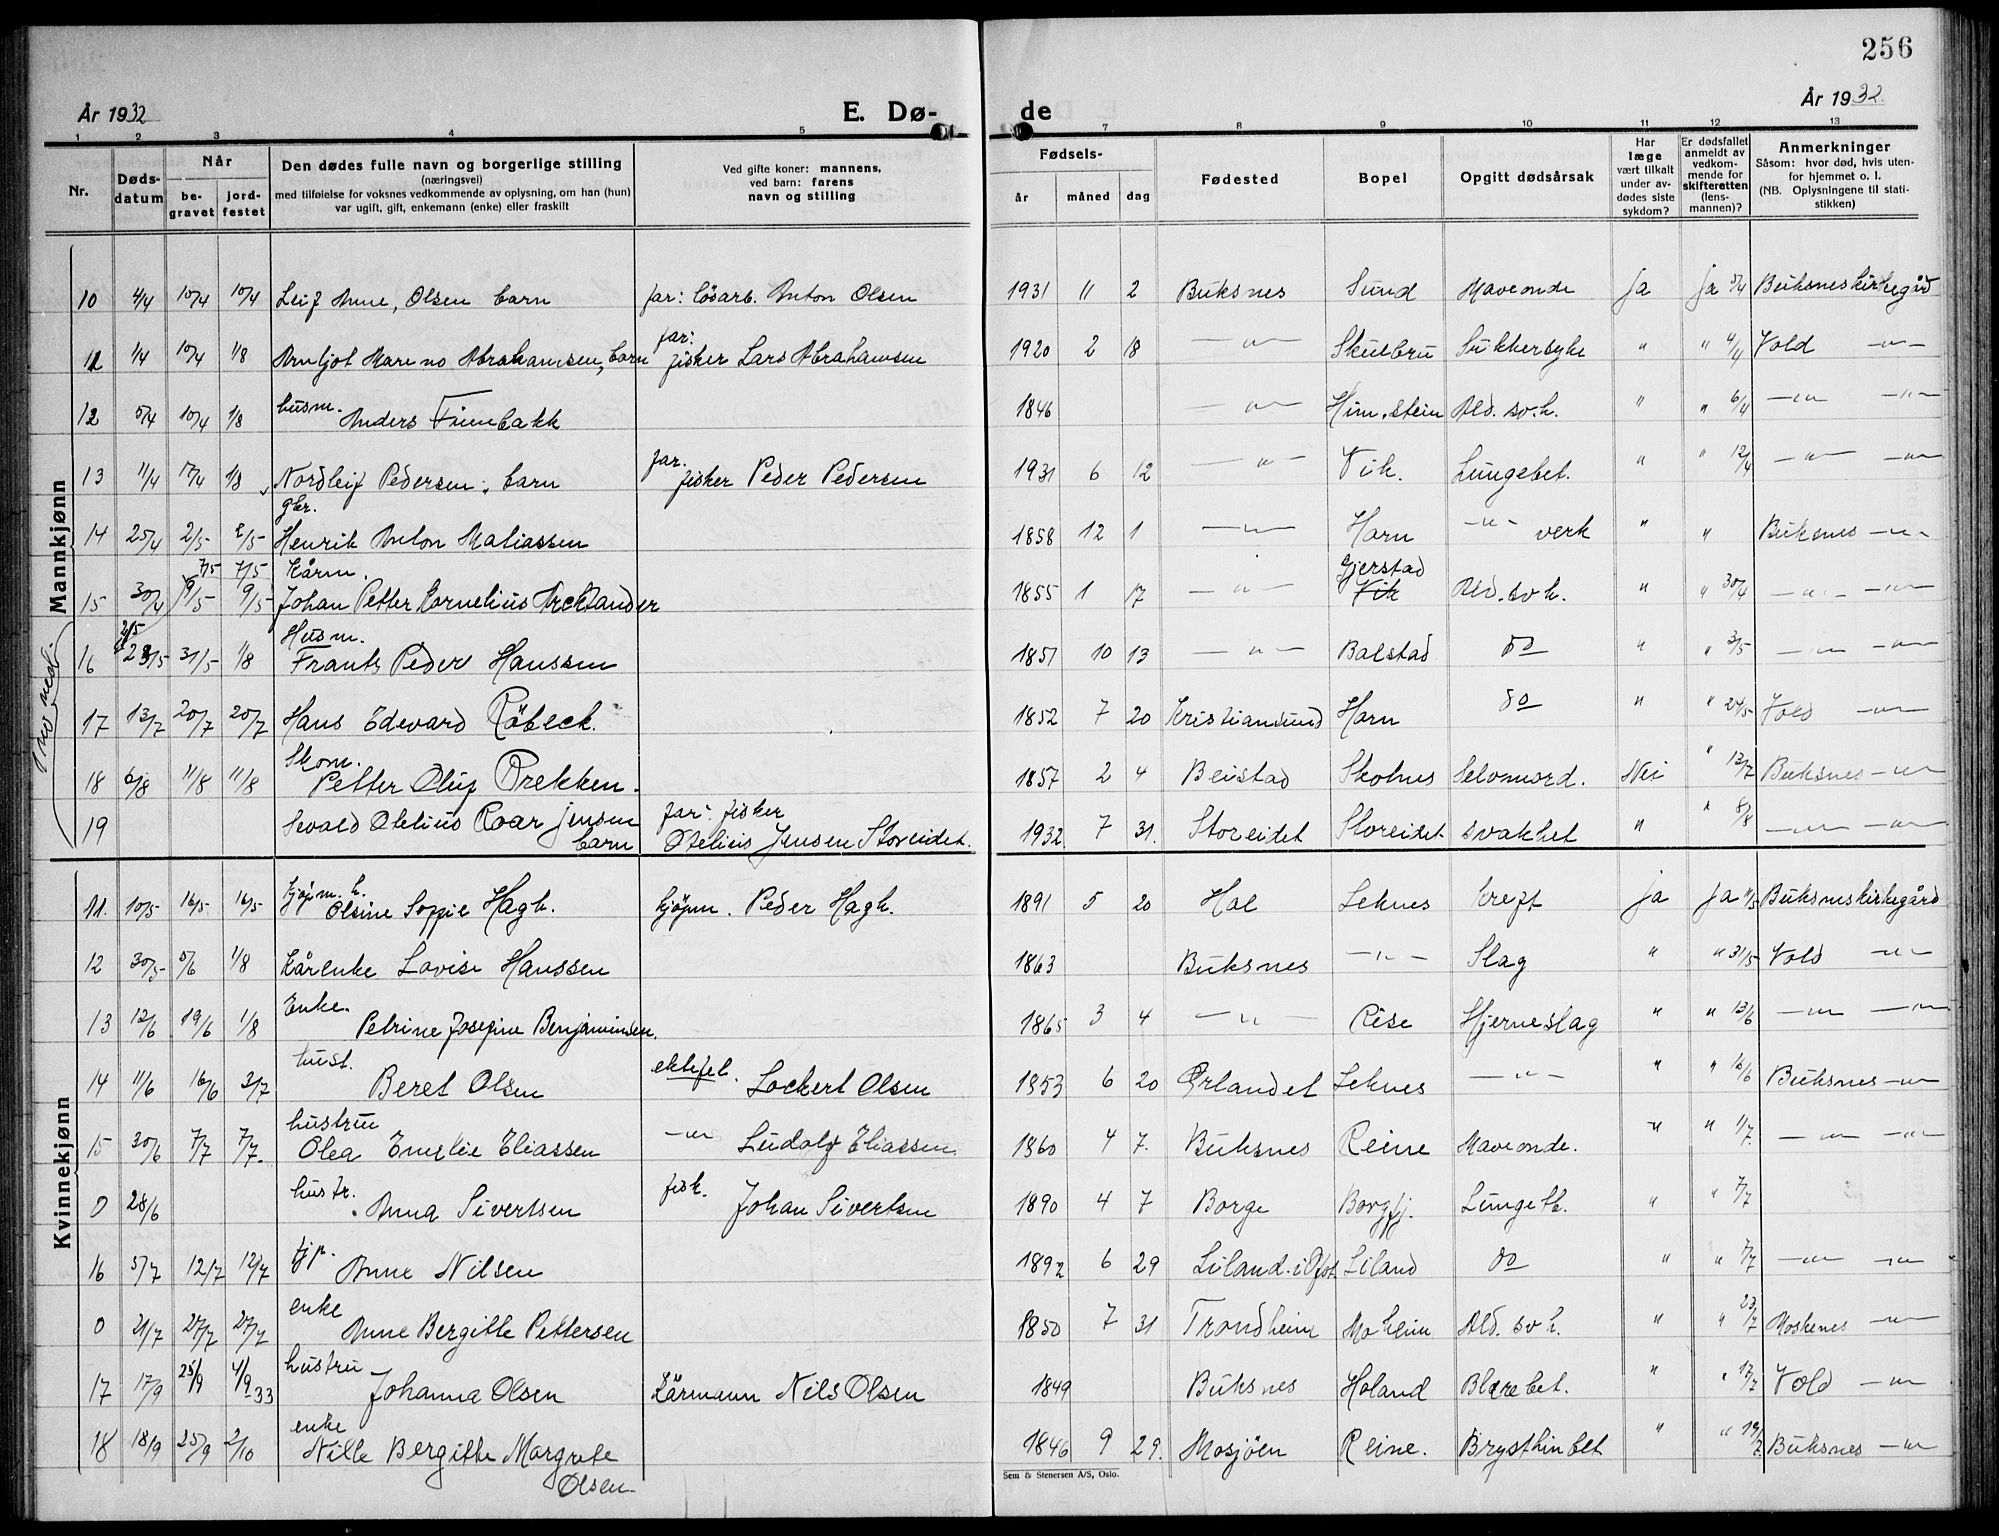 256
År 1932 E. Dø- de År 1932.
1 2 3 4 5 7 8 9 10 11 12 13
Nr. Døds-datum Når be-gravet jord-festet Den dødes fulle navn og borgerlige stilling (næringsvei) med tilføielse for voksnes vedkommende av oplysning, om han (hun) var ugift, gift, enkemann (enke) eller fraskilt Ved gifte koner: mannens, ved barn: farens navn og stilling Fødsels- år måned dag Fødested Bopel Opgitt dødsårsak Har læge vært tilkalt under av-dødes siste sykdom? Er dødsfallet anmeldt av vedkom-mende for skifteretten (lens-mannen)? Anmerkninger Såsom: hvor død, hvis uten-for hjemmet o. l. (NB. Oplysningene til stati-stikken)
Mannkjønn
10 4/4 10/4 10/4 Leif Arne, Olsen barn far: løsarb. Anton Olsen 1931 11 2 Buksnes Sund Maveonde ja ja 5/4 Buksneskirkegård
11 1/4 10/4 1/8 Arnljot Mareno Abrahamsen, barn far: fisker Lars Abrahamsen 1920 2 18 —"— Skulbru Sukkersyke " " 4/4 Vold —"—
12 5/4 10/4 1/8 husm. Anders Finnbakk 1846 —"— Him.stein Ald. sv.h. " " 6/4 —"— —"—
13 11/4 17/4 1/8 Nordleif Pedersen, barn far. fisker Peder Pedersen 1931 6 12 —"— Vik. Lungebet. " " 12/4 —"— —"—
14 25/4 2/5 2/5 gbr. Henrik Anton Matiassen 1858 12 1 —"— Horn —"— verk " " Buksnes —"—
7/5 7/5 Kårm. Gjerstad
15 30/4 9/5 9/5 Johan Petter Kornelius Arctander 1855 1 17 —"— Vik Ald. sv h. " " 30/4 —"— —"—
2/5
16 31/5 1/8 Husm. Frants Peder Hanssen 1851 10 13 —"— Balstad do " " 3/5 —"— —"—
17 13/7 20/7 20/7 Hans Edevard Röbeck. 1852 7 20 Kristiansund Horn do " " 24/5 Vold —"—
18 6/8 11/8 11/8 Skom. Petter Oluf Brekken. 1857 2 4 Beistad Skotnes Selvmord. Nei " 13/7 Buksnes —"—
19 Sevald Otelius Roar Jensen barn far: fisker Otelius Jensen Storeidet. 1932. 7 31. Storeidet Storeidet svakhet " " 8/8 —"— —"—
Kvinnekjønn
11. 10/5 16/5 16/5 kjøpm. h. Olsine Soffie Hagh. kjøpm. Peder Hagh. 1891 5 20 Hol Leknes kreft ja ja 11/5 Buksneskirkegård
12 30/5 5/6 1/8 Kårenke Lovise Hanssen 1863 Buksnes —"— Slag " " 31/5 Vold —"—
13 12/6 19/6 1/8 Enke. Petrine Josefine Benjaminsen. 1865 3 4 —"— Rise Hjerneslag " " 13/6 —"— —"—
14 11/6 16/6 3/7 hust. Beret Olsen ektefel. Lockert Olsen 1853 6 20 Ørlandet Leknes —"— " " 16/6 Buksnes —"—
15 30/6 7/7 7/7. hustru Olea Emelie Eliassen —"— Ludolf Eliassen 1860 4 7. Buksnes Reine Maveonde. " " 1/7 —"— —"—
0 28/6 hustr. Anna Sivertsen fisk. Johan Sivertsen 1890 4 7 Borge Borgfj. Lungetb. " " 7/7
16 5/7 12/7 12/7 Anne Nilsen 1892 6 29 Liland i Ofot. Liland do " " 7/7 —"— —"—
0 21/7 27/7 27/7 enke Anne Bergitte Pettersen 1850 7 31 Trondheim Moheim Ald. sv h. " " 23/7 Moskenes —"—
17 17/9 25/9 4/9 33 hustru Johanna Olsen Kårmann Nils Olsen 1849 Buksnes Holand Blærebet. " " Vold —"—
18 18/9 25/9 2/10 enke Nille Bergitte Margrete Olsen 1846 9 29. Mosjöen Reine. Brysthinbet " " Buksnes —"—
Sem & Stenersen A/S, Oslo.